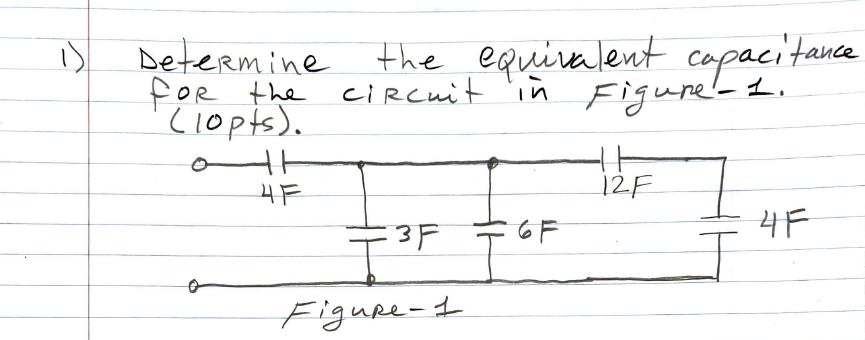 1) Determine the equivalent capacitance
for the circuit in Figure-1.
(10pts).
4F
12F
3F
6F
4F
Figure-1